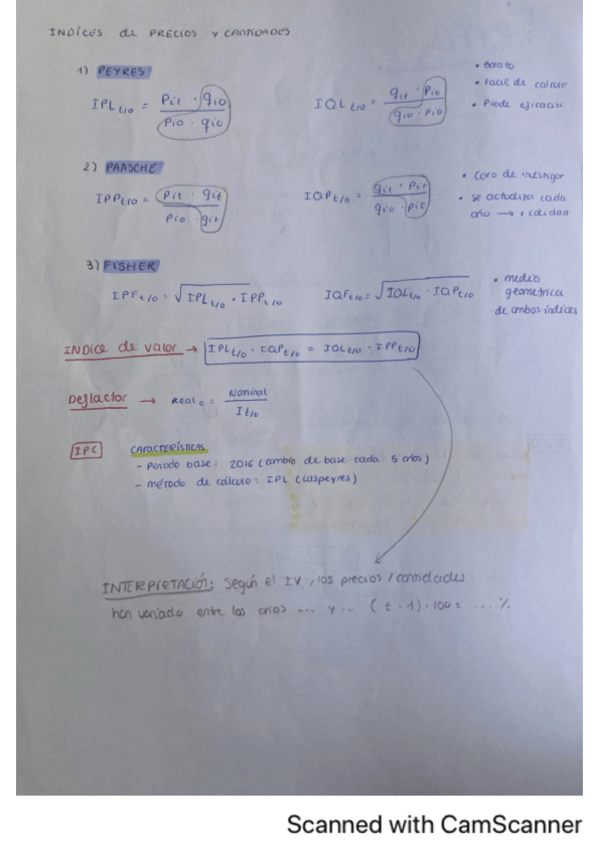 INDICES de PRECIOS y CANTIDADES
1) PEYRES
IPL t/o = Pit · qio / Pio · qio
IQL t/o = qit · Pio / qio · Pio
• Barato
• Facil de calcular
• Pierde eficacia
2) PAASCHE
IPP t/o = Pit · qit / Pio · qit
IQP t/o = qit · Pit / qio · Pit
• Caro de
• se actualiza cada
año → + calidad
3) FISHER
IPF t/o = √ IPL t/o · IPP t/o
IQF t/o = √ IQL t/o · IQP t/o
• media
geometrica
de ambos índices
INDICE de valor → IPL t/o · IQP t/o = IQL t/o · IPP t/o
Deflactor → Real o = Nominal / I t/o
IPC
CARACTERÍSTICAS
- Periodo base: 2016 (cambio de base cada 5 años)
- método de cálculo: IPL (Laspeyres)
INTERPRETACIÓN: Según el IV, los precios / cantidades
han variado entre los años ... y ... (t - 1) · 100 = ... %
Scanned with CamScanner